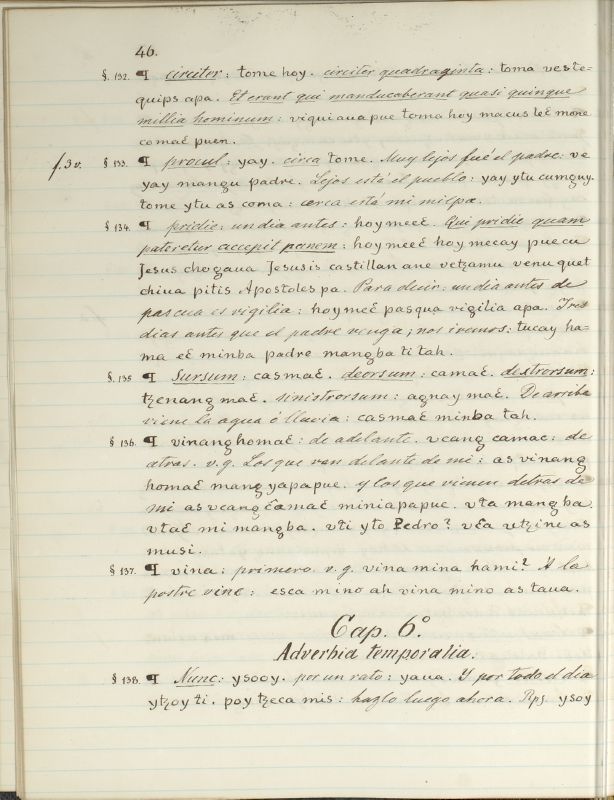 46.
§. 132. ¶ circiter: tome hoy. circiter quadraginta: toma veste=
quips apa. Et erant qui manducaberant quasi quinque
millia hominum: viquiaua pue toma hoy macus leē mone
comaē puen.
f. 3 v. § 133. ¶ procul: yay. circa tome. Muy lejos fué el padre: ve
yay mangu padre. Lejos está el pueblo: yay ytu cumguy.
tome ytu as coma: cerca está mi milpa.
§ 134. ¶ pridie: un dia antes: hoymeē. Qui pridie quam
pateretur accepit panem: hoymeē hoy mecay pue cu
Jesus chogaua Jesusis castillan ane vetzamu venu quet
chiua pitis Apostoles pa. Para decir: un dia antes de
pascua es vigilia: hoymeē pasqua vigilia apa. Tres
dias antes que el padre venga; nos iremos: tucay ha-
ma eē minba padre mangba ti tah.
§. 135 ¶ Sursum: casmaē. deorsum: camaē. dextrorsum:
tzenang maē. sinistrorsum: agnay maē. De arriba
viene la agua ó lluvia: casmaē minba tah.
§ 136. ¶ vinanghomaē: de adelante. vcang camae: de
atras. v.g. Los que van delante de mi: as vinang
homaē mang yapapue. y los que vienen detras de
mi as vcang camaē miniapapue. vta mangba
vtaē mi mangba. vti yto Pedro? vēa utzine as
musi.
§ 137. ¶ vina: primero. v. g. vina mina hami? A la
postre vine: esca mino ah vina mino as taua.
Cap. 6.º
Adverbia temporalia.
§ 138. ¶ Nunc: ysooy. por un rato: yaua. Y por todo el dia
ytzoy ti. poy tzeca mis: hazlo luego ahora. Rps. ysoy